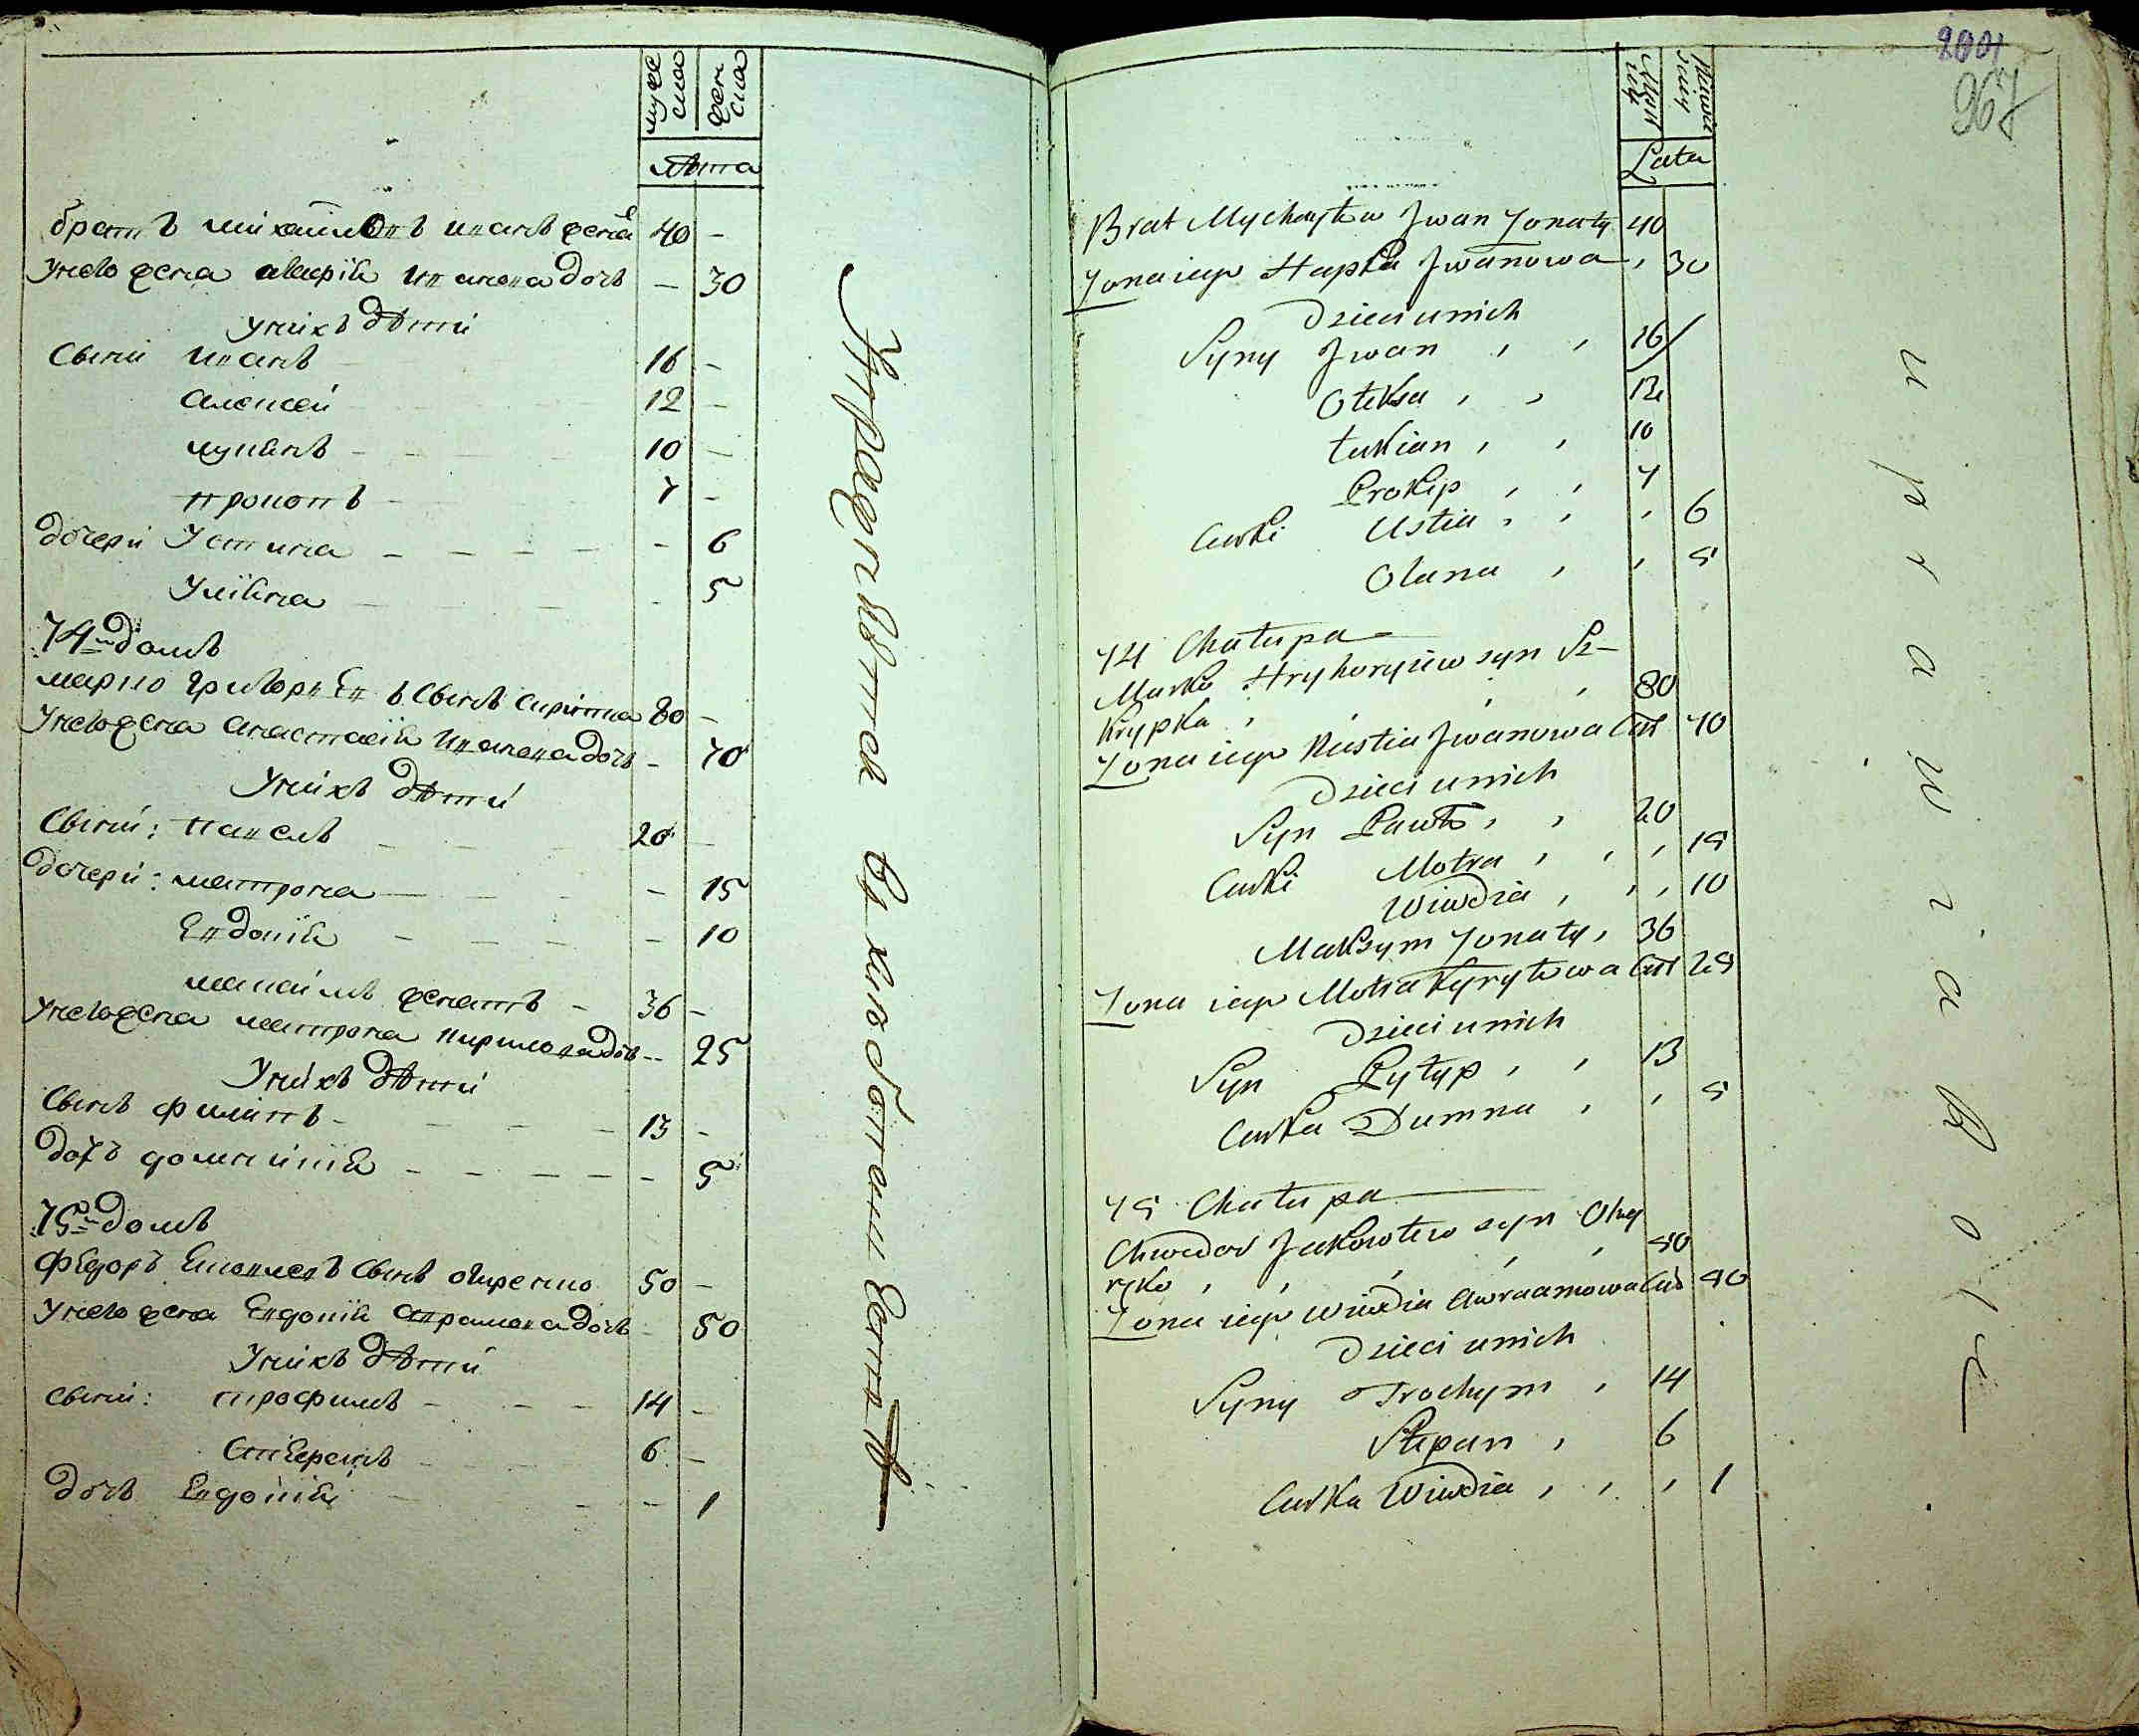 мужеска
женска
лѣта
братъ михайловъ иванъ жена 40 –
У него жена Агафія иванова дочь – 30
У нихъ дѣти
Сыни иванъ 16 –
алексей 12 –
лукянъ 10 –
прокопъ 7 –
дочери Устина – 6
Уліяна – 5
74 домъ
марко григорьевъ Сынъ скрипка 80 –
У него жена анастасія иванова дочь – 70
У нихъ дѣти
Сыни: павелъ 20 –
дочери: матрона – 15
Евдокія – 10
максимъ женатъ – 36 –
У него жена матрона кирилова дочь – 25
У нихъ дѣти
Сынъ филипъ – 13 –
дочь домникія – 5
75 домъ
Федоръ Сынъ 50 –
У него жена Евдокія аврамова дочь – 50
У нихъ дѣти
сыни: трофимъ – 14 –
6 –
дочь Евдокія – 1
2001
967
Męzki
Lata
Brat Mychayław Jwan Zonaty 40
Zona iego Hapka Jwanowa , 30
Dzieci u nich
Syny Jwan , , 16
Ołeksa , , 12
Łukian , , 10
Prokip , , 7
Curki Ustia , , , 6
Olana , , 5
74 Chałupa
Marko Hryhoryiew syn Sz-
krypka , , , , 80
Zona iego Nastia Jwanowa Cur 70
Dzieci u nich
Syn Pawło , , 20
Curki Motra , , , 15
Wiwdia , , , 10
Maksym Zonaty , 36
Zona iego Motra Kyryłowa Cur 25
Dzieci u nich
Syn Pyłyp , , 13
Curka Dumna , , 5
75 Chałupa
Chwedor syn Ohy
rko , , , , , 50
Zona iego Wiwdia Awraamowa Cur 50
Dzieci u nich
Syny Trochym , 14
Stepan , 6
Curka Wiwdia , , , 1